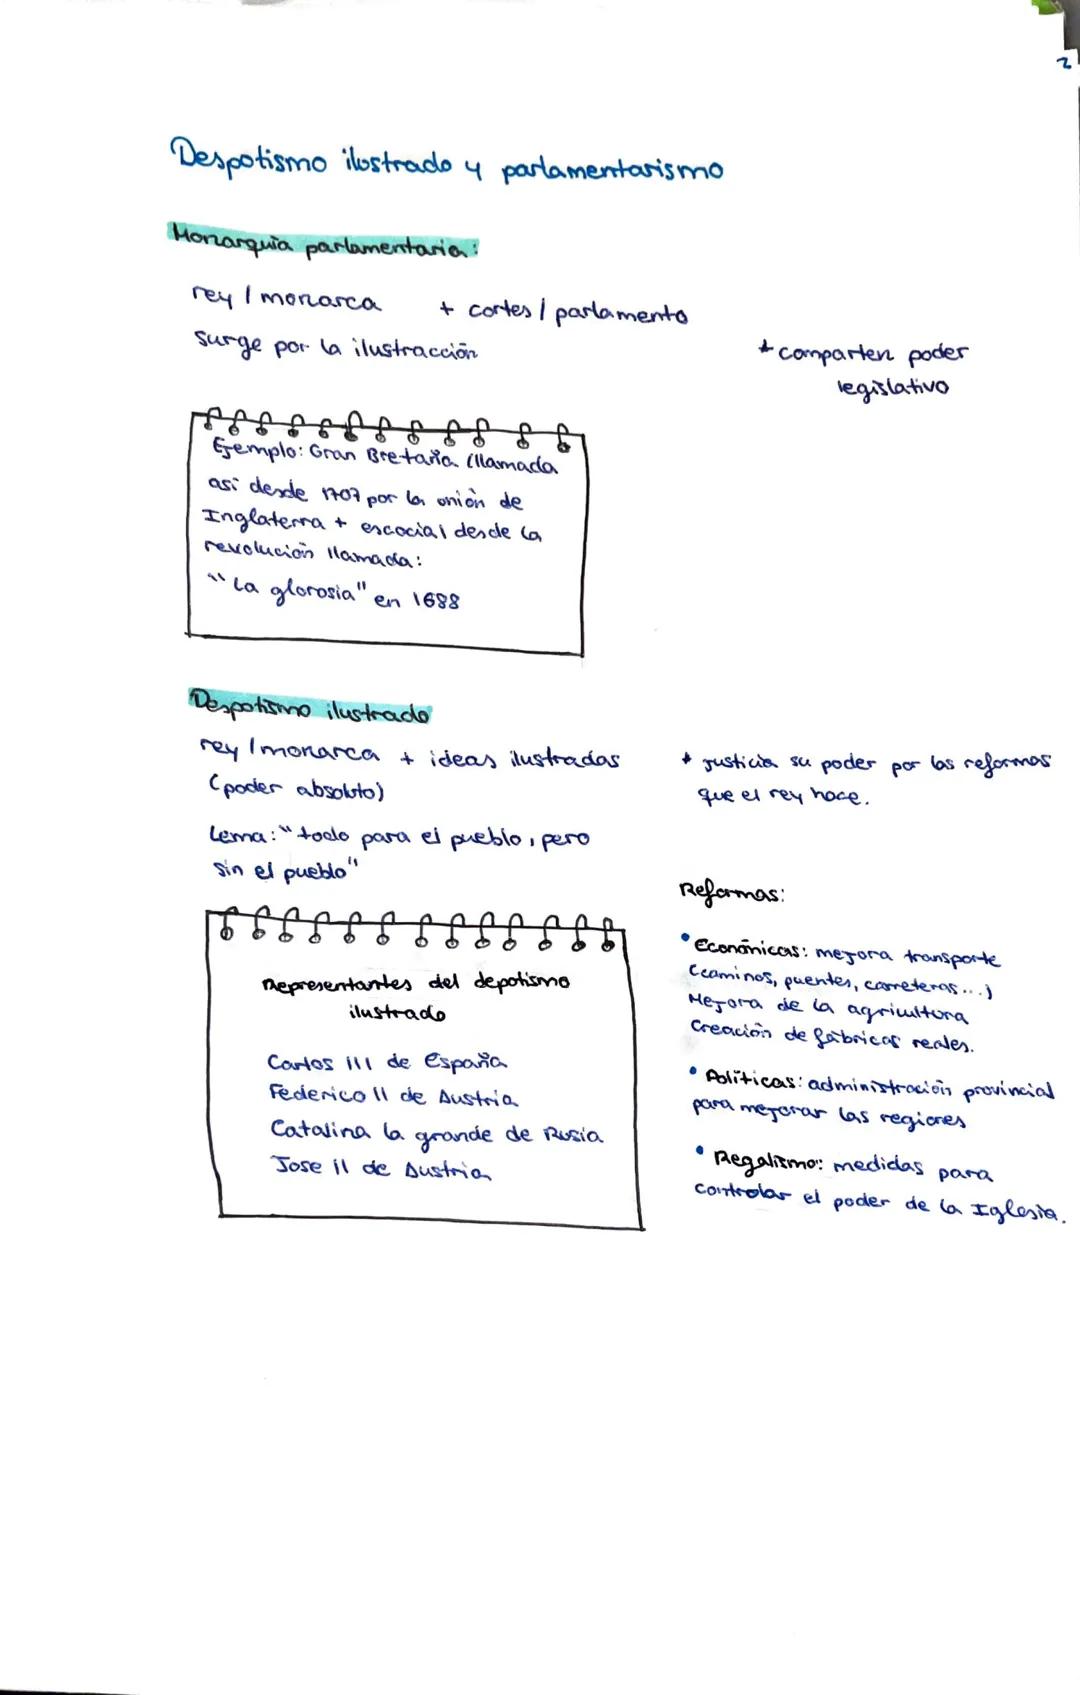 2
Despotismo ilustrado y parlamentarismo
Monarquía parlamentaria:
rey / monarca + cortes / parlamento
surge por la ilustracción
* comparten poder
legislativo
Ejemplo: Gran Bretaña (llamada
así desde 1707 por la unión de
Inglaterra + escocia) desde la
revolución llamada:
"La glorosia" en 1688
Despotismo ilustrado
rey / monarca + ideas ilustradas
(poder absoluto)
Lema: "todo para el pueblo, pero
sin el pueblo"
* justicia su poder por las reformas
que el rey hace.
Representantes del depotismo
ilustrado
Carlos III de España
Federico II de Austria
Catalina la grande de Rusia
Jose II de Austria
Reformas:
• Económicas: mejora transporte
(caminos, puentes, carreteras...)
Mejora de la agricultura
Creación de fábricas reales.
• Políticas: administración provincial
para mejorar las regiones
• Regalismo: medidas para
controlar el poder de la Iglesia.